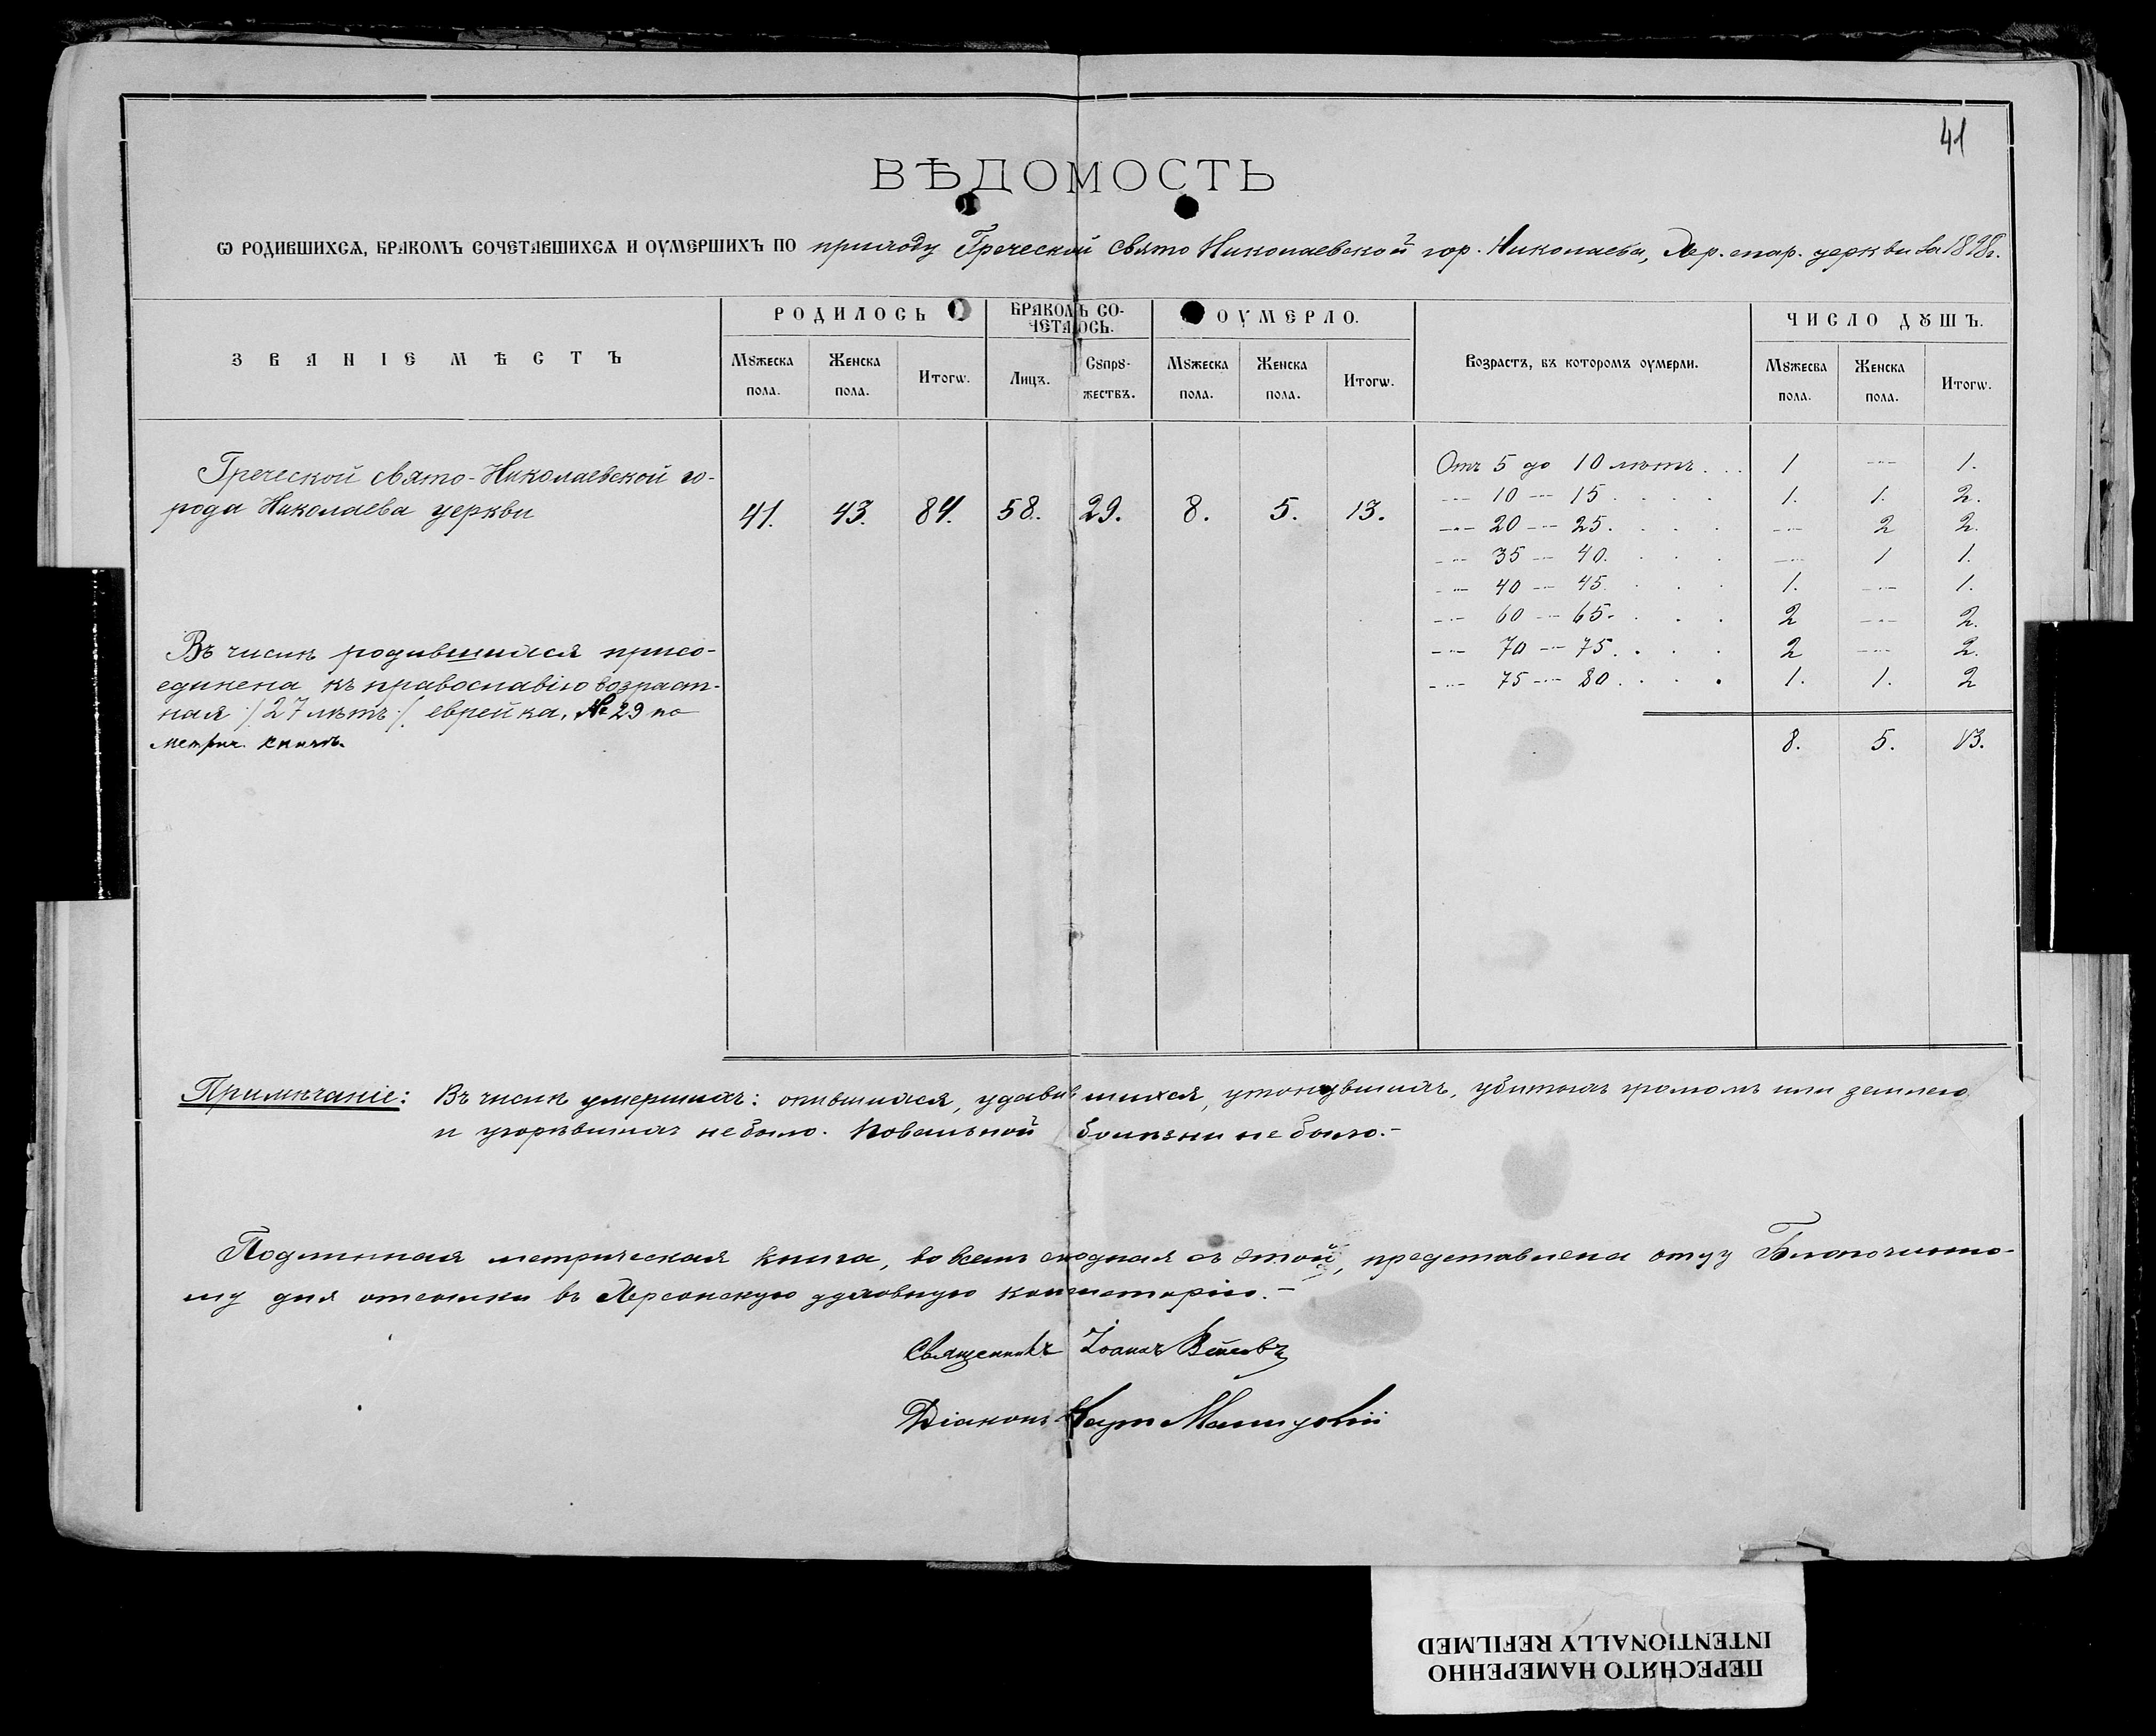 41
ВѢДОМОСТЬ
Ѡ РОДИВШИХСѦ, БРАКОМЪ СОЧЕТАВШИХСѦ И ОУМЕРШИХЪ ПО приходу Греческой Свято Николаевской гор. Николаева, Хер. епар. церкви за 1898 г.
ЗВАНІЕ МѢСТЪ
РОДИЛОСЬ
БРАКОМЪ СО-
ЧЕТАЛОСЬ.
ОУМЕРЛО.
Возрастъ, въ которомъ оумерли.
ЧИСЛО ДꙊШЪ.
Мꙋжеска пола.
Женска пола.
Итогѡ.
Лицъ.
Сꙋпрꙋ-
жествъ.
Мꙋжеска пола.
Женска пола.
Итогѡ.
Мꙋжесва пола.
Женска пола.
Итогѡ.
Греческой Свято-Николаевской го-
рода Николаева церкви
41. 43. 84. 58. 29. 8. 5. 13.
Отъ 5 до 10 лѣтъ . . . 1 — 1.
— 10 — 15 . . . . 1. 1. 2.
— 20 — 25. . . . — 2 2.
— 35 — 40. . . . — 1 1.
— 40 — 45. . . . 1. — 1.
— 60 — 65. . . . 2 — 2.
— 70 — 75. . . . 2 — 2.
— 75 — 80. . . . 1. 1. 2
8. 5. 13.
Въ числѣ родившихся присо-
единена къ православію возраст-
ная /27 лѣтъ/ еврейка, № 29 по
метрич. книгѣ.
Примѣчаніе: Въ числѣ умершихъ: опившихся, удавившихся, утонувшихъ, убитыхъ громомъ или землею
и угорѣвшихъ не было. Повальной болѣзни не было.—
Подлинная метрическая книга, во всемъ сходная съ этой, представлена отцу Благочинно-
му для отсылки въ Херсонскую духовную консисторію.—
Священникъ Іоаннъ
Діаконъ
ПЕРЕСНЯТО НАМЕРЕННО
INTENTIONALLY REFILMED